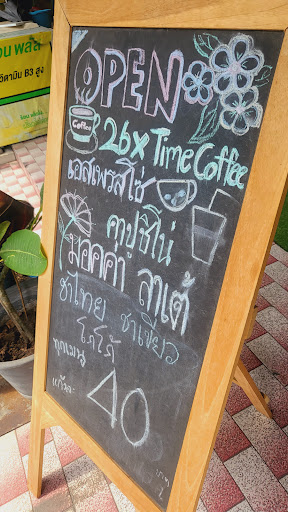 วิตามิน B3 สูง
OPEN
Coffee
26x Time Coffee
เอสเพรสโซ่
คาปูชิโน่
มอคค่า ลาเต้
ชาไทย ชาเขียว
โกโก้
ทุกเมนู
แก้วละ 40